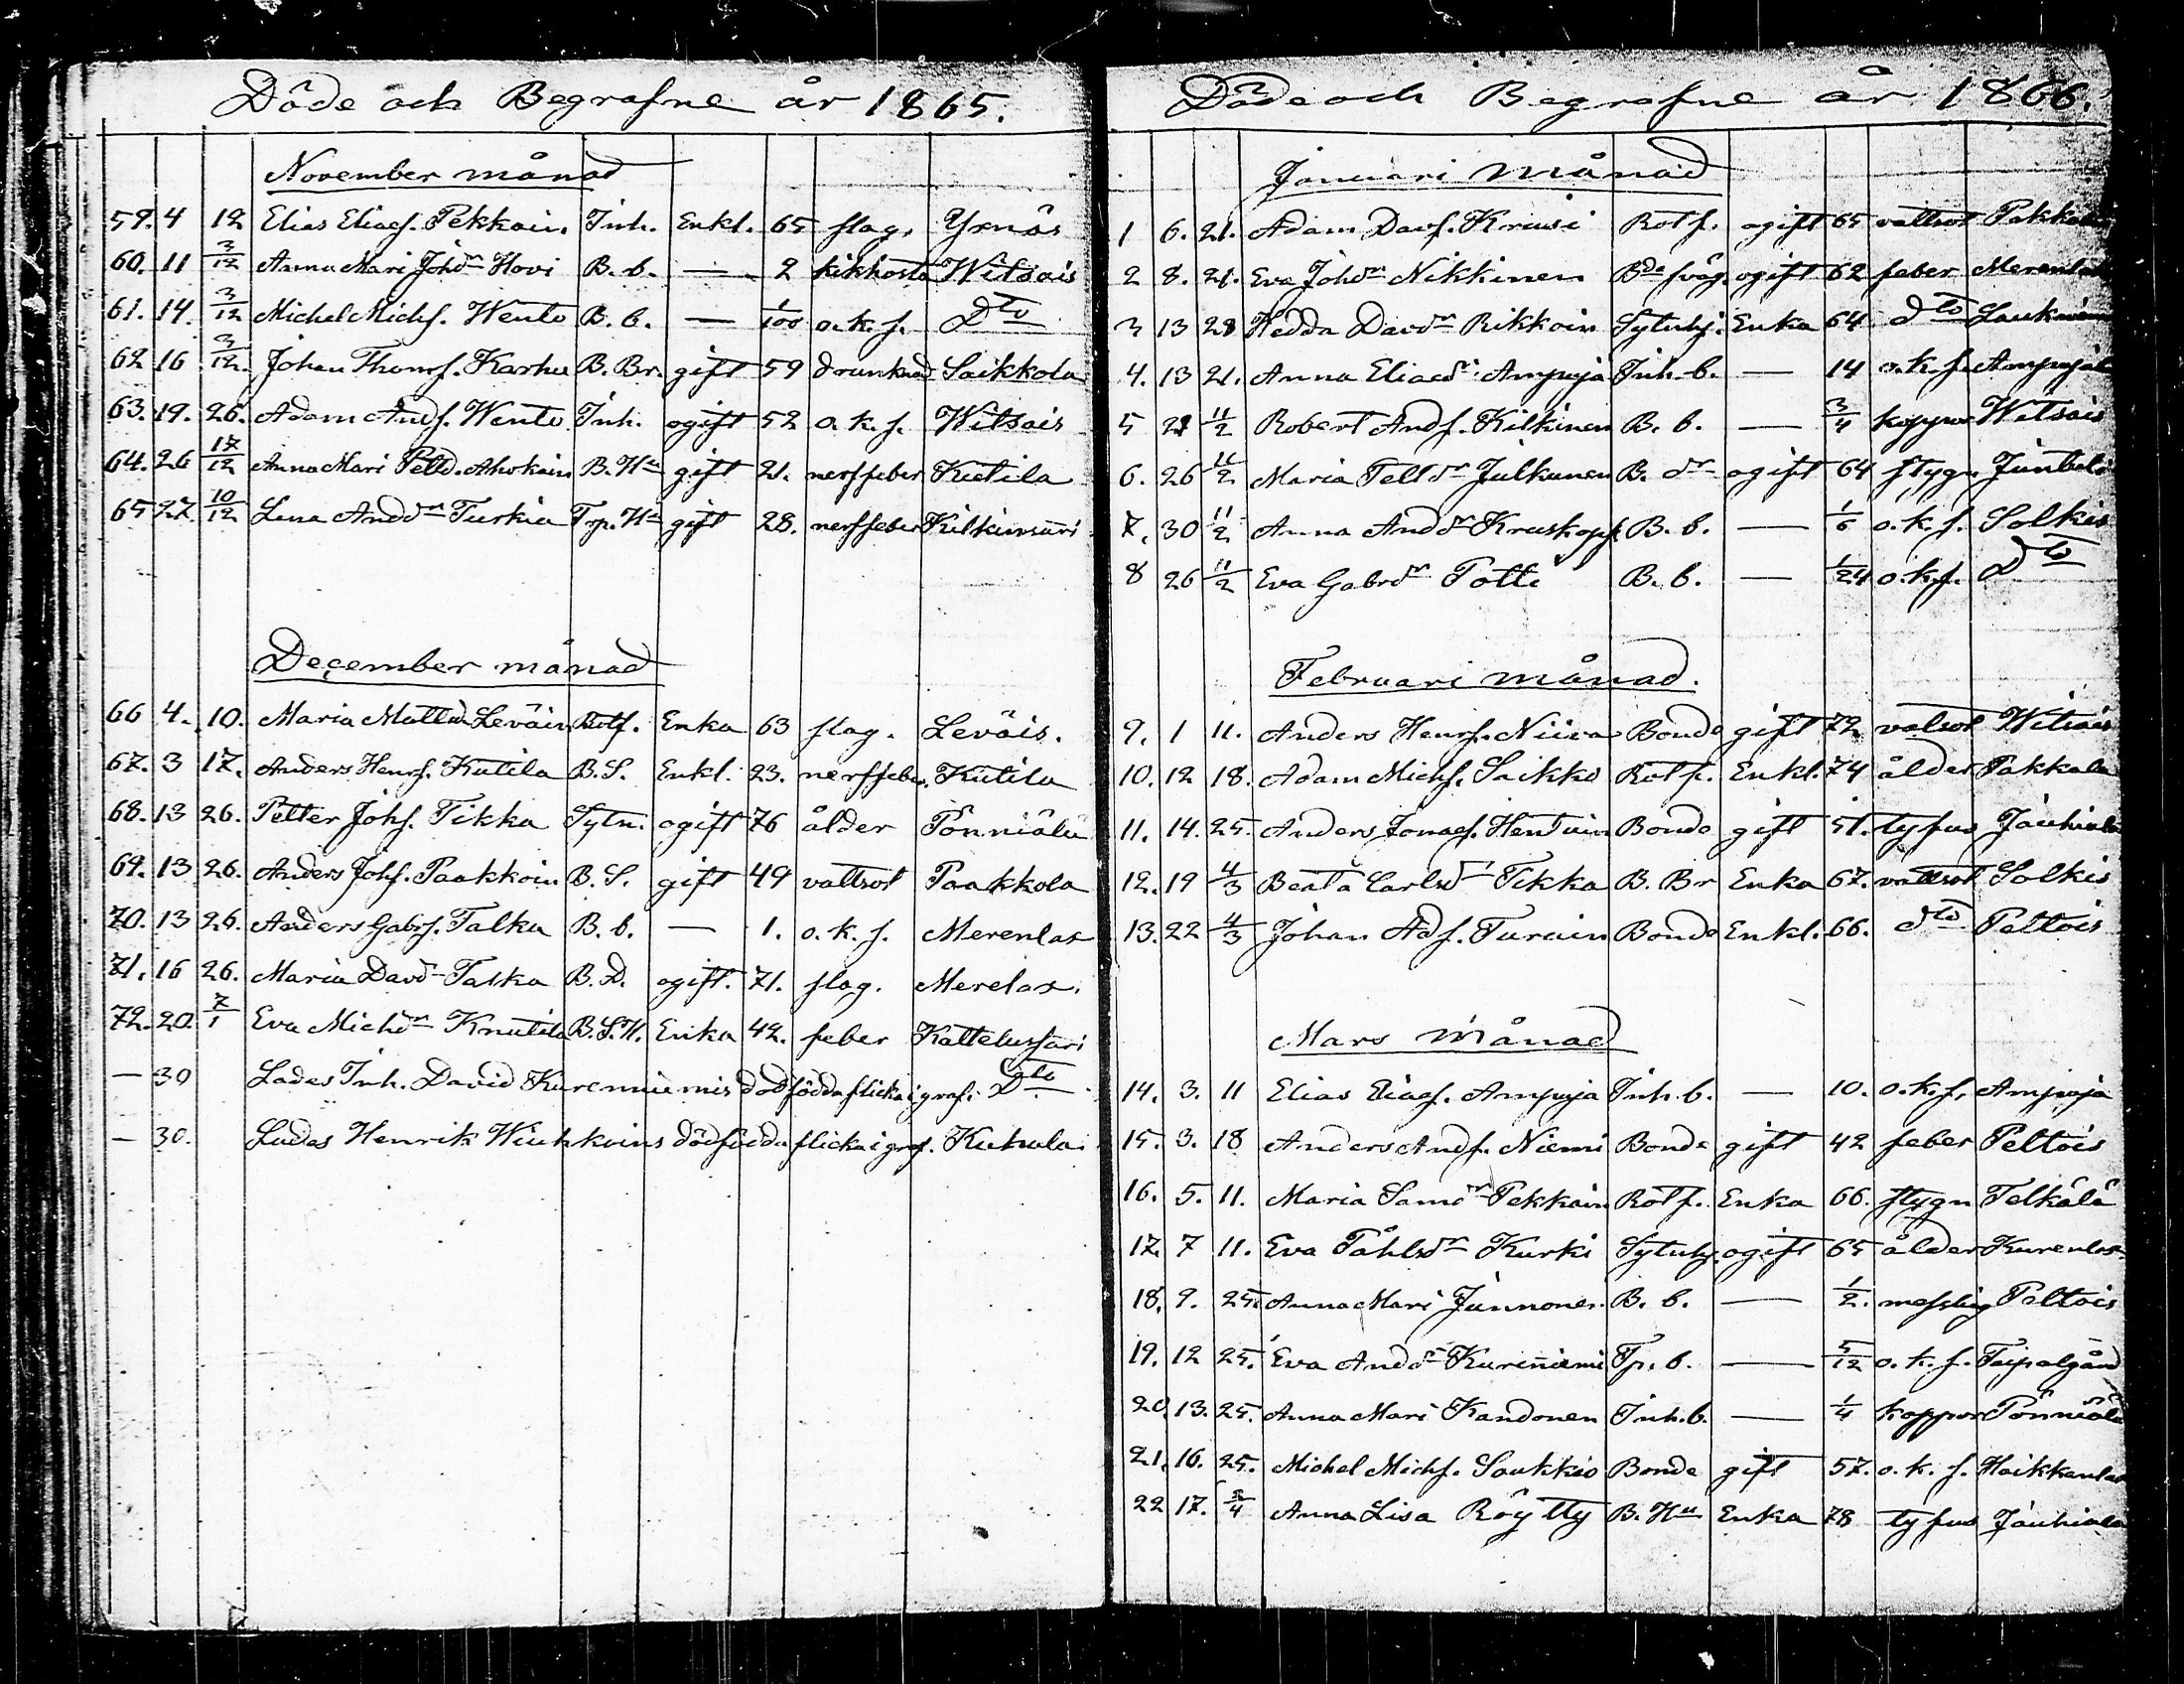 Döde och Begrafne år 1865.
November månad
59. 4 12 Elias Eliasf. Pekkain. Inh. Enkl. 65 slag. Yxnäs
60. 11 3/12 Anna Mari Johdr Hovi B. b. — 2 kikhosta Witsais
61. 14. 3/12 Michel Michf. Wento B. b. — 1/100 o. k. s. Dto
62 16 3/12. Johan Thomf. Karhu B. Br. gift 59 drunknad Saikkola
63. 19. 26. Adam Andf. Wento Inh. ogift 52 o. k. s. Witsais
64. 26 17/12 Anna Mari Petd. Ahokain B. Hu gift 21. nerffeber Kutila
65 27. 10/12 Lena Anddr Turkia Tp. Hu gift 28. nerffeber Kilkinsari
December månad
66 4. 10. Maria Mattd. Leväin Rotf. Enka 63 slag. Leväis.
67. 3 17. Anders Henrf. Kutila B. S. Enkl. 23. nerffeber. Kutila
68. 13 26. Petter Johf. Tikka Sytn. ogift 76 ålder Pönniälä
69. 13 26. Anders Johf. Paakkoin B. S. gift 49 vattsot Paakkola
70. 13 26. Anders Gabrf. Talka B. b. — 1. o. k. s. Merenlax
71. 16 26. Maria Davdr Talka B. D. ogift. 71. slag. Merelax.
72. 20. 7/1 Eva Michdr Knutila B. S. H. Enka 42. feber Kattelussari
— 30 Lades Inh. David Kurenniemis dödfödda flicka i graf. Dto
— 30. Lades Henrik Wiuhkoins dödfödda flicka i graf. Kuhula.
Döde och Begrafne år 1866.
Januari månad
1 6. 21. Adam Davf. Kruusi Rotf. ogift 65 vattsot Pakkola
2 8. 21. Eva Johdr Nikkinen Bde svåg. ogift 62 feber Merenlax
3 13 28 Hedda Davdr Rikkoin Sytnhj. Enka 64 dto
4. 13 21. Anna Eliædr Ampuja Inh. b. — 14 o. k. s. Ampujala
5 21 11/2 Robert Andf. Kilkinen B. b. — 3/4 koppor Witsais
6. 26 11/2 Maria Telldr Julkunen B. dr ogift 64 stygn
7. 30 11/2 Anna Anddr Kruskopf B. b. — 1/6 o. k. s. Solkis
8 26 11/2 Eva Gabrdr Potti B. b. — 1/24 o. k. s. Dto
Februari månad.
9. 1 11. Anders Henrf. Niiva Bonde gift 72 vatsot Witsais
10. 12 18. Adam Michf. Saikko Rotf. Enkl. 74 ålder Pakkola
11. 14. 25. Anders Jonasf. Hentuin Bonde gift 51. tyfus Jäuhiala
12. 19 4/3 Beata Carlsdr Tikka B. Br Enka 67. vattsot Solkis
13. 22 4/3 Johan Adf. Turuin Bonde Enkl. 66. dto Peltois
Mars månad
14. 3. 11 Elias Eliasf. Ampuja Inh. b. — 10. o. k. s. Ampuja
15. 3. 18 Anders Andf. Niemi Bonde gift 42 feber Peltois
16. 5. 11. Maria Samdr Pekkain Rotf. Enka 66. stygn Telkälä
17. 7 11. Eva Påhlsdr Kurki Sytnhj. ogift 65 ålder Kurenlax
18. 9. 25. Anna Mari Junnonen. B. b. — 1/2. messling Peltois
19. 12 25. Eva Anddr Kureniemi Tp. b. — 5/12 o. k. s. Taipalgård
20. 13. 25. Anna Mari Kandonen Inh. b. — 1/4 koppor Pönniälä
21. 16. 25. Michel Michf. Saukkio Bonde gift 57. o. k. s. Haikkanlax
22 17. 2/4 Anna Lisa Röytty B. Hu Enka 78 tyfus Jäuhiala